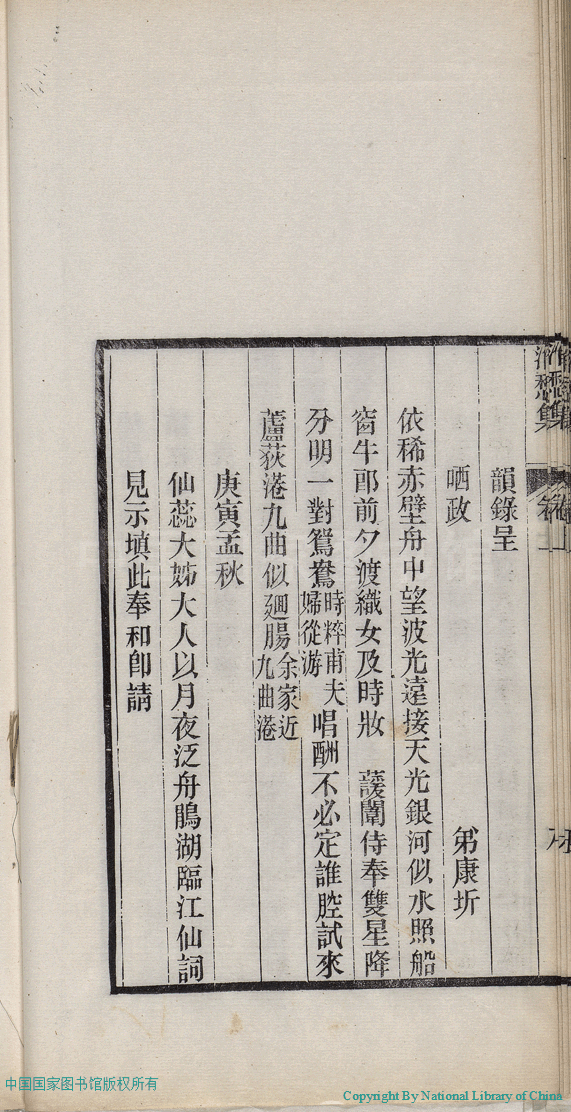 韻錄呈
哂政
弟康圻
依稀赤壁舟中望波光遠接天光銀河似水照船
窗牛郎前夕渡織女及時妝　護闈侍奉雙星降
分明一對鴛鴦時粹甫夫婦從游唱酬不必定誰腔試來
蘆荻港九曲似迴腸余家近九曲港
庚寅孟秋
仙蕊大姊大人以月夜泛舟鵑湖臨江仙詞
見示填此奉和卽請
中国国家图书馆版权所有
Copyright By National Library of China